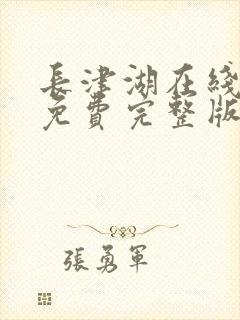 長津湖在綫
免費完整版
張勇軍